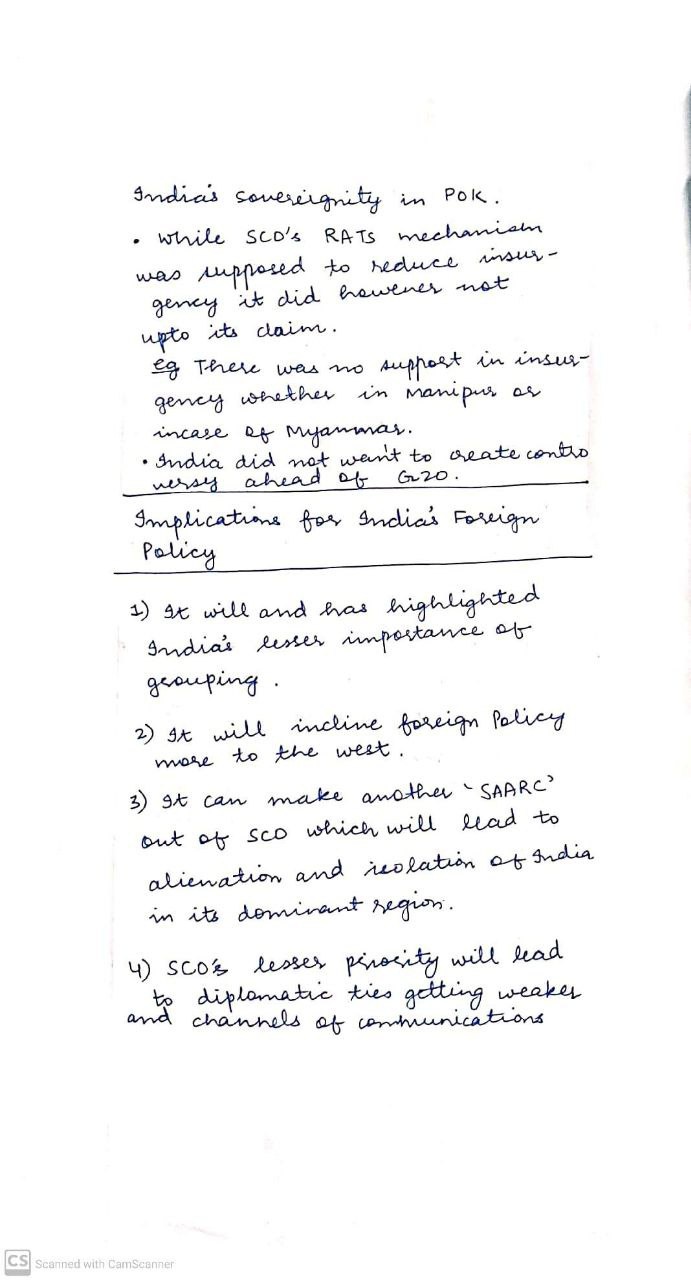 India's sovereignity in POK.
• While SCO's RATs mechanism
was supposed to reduce insur-
gency it did however not
upto its claim.
eg There was no support in insur-
gency whether in Manipur or
incase of Myanmar.
• India did not want to create contro
versy ahead of G20.
Implications for India's Foreign
Policy
1) It will and has highlighted
India's lesser importance of
grouping.
2) It will incline foreign Policy
more to the west.
3) It can make another 'SAARC'
out of SCO which will lead to
alienation and isolation of India
in its dominant region.
4) SCO's lesser pirority will lead
to diplomatic ties getting weaker
and channels of communications
CS Scanned with CamScanner